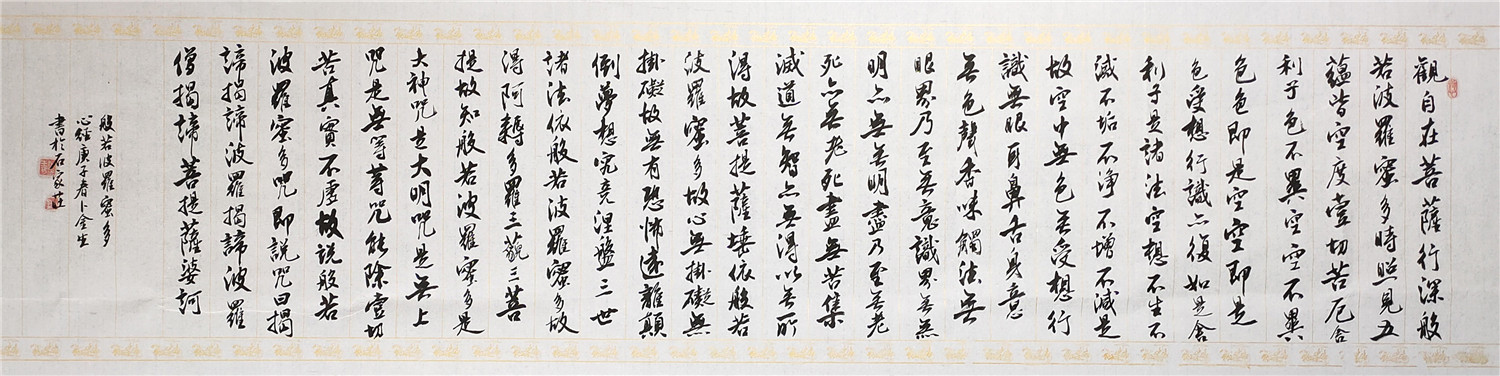 觀自在菩薩行深般
若波羅蜜多時照見五
蘊皆空度壹切苦厄舍
利子色不異空空不異
色色即是空空即是
色受想行識亦復如是舍
利子是諸法空想不生不
滅不垢不淨不增不減是
故空中無色無受想行
識無眼耳鼻舌身意
無色聲香味觸法無
眼界乃至無意識界無無
明亦無無明盡乃至無老
死亦無老死盡無苦集
滅道無智亦無得以無所
得故菩提薩埵依般若
波羅蜜多故心無掛礙無
掛礙故無有恐怖遠離顛
倒夢想究竟涅盤三世
諸法依般若波羅蜜多故
得阿耨多羅三藐三菩
提故知般若波羅蜜多是
大神咒是大明咒是無上
咒是無等等咒能除壹切
苦真實不虛故說般若
波羅蜜多咒即說咒曰揭
諦揭諦波羅揭諦波羅
僧揭諦菩提薩婆訶
般若波羅蜜多
心經庚子春卜金生
書於石家莊